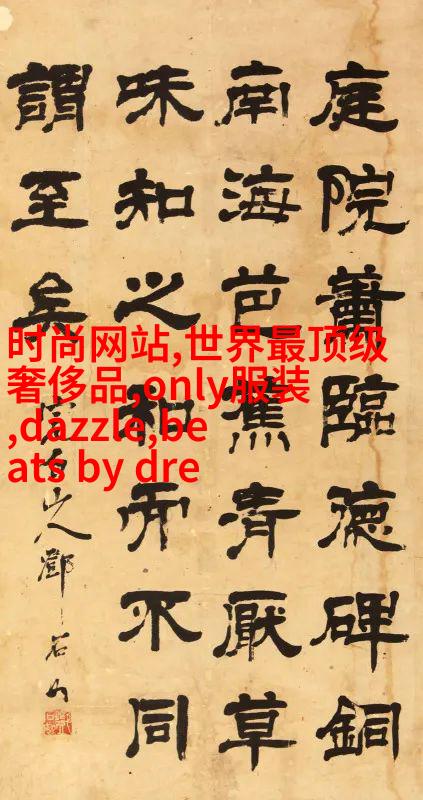 庭院蕭臨德碑銅
南海芭蕉青厭草
味知之和而不同
謂至矣
完白山人鄧石如
时尚网站,世界最顶级
奢侈品,only服装
,dazzle,be
ats by dre